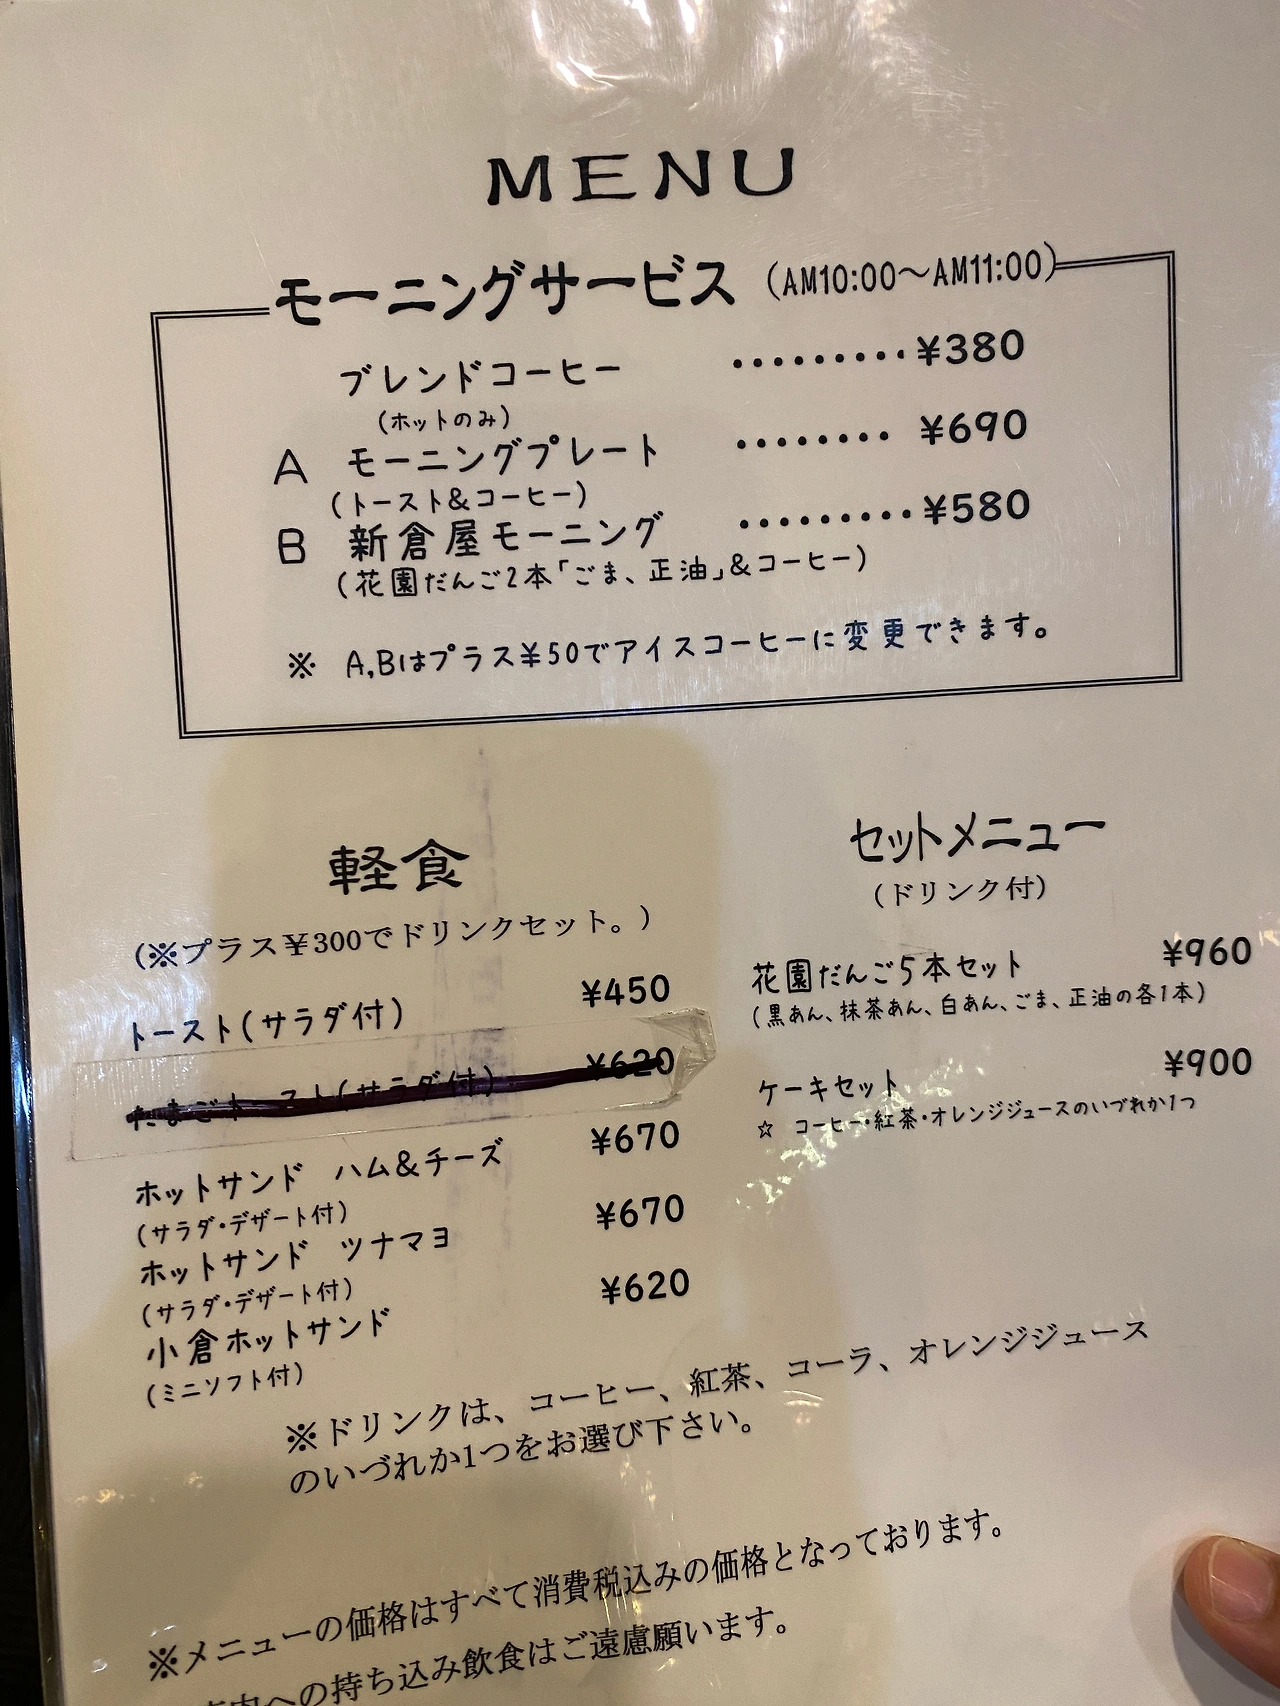 MENU
モーニングサービス (AM10:00～AM11:00)
ブレンドコーヒー ･････････¥380
(ホットのみ)
A モーニングプレート ････････ ¥690
(トースト&コーヒー)
B 新倉屋モーニング ･････････¥580
(花園だんご2本「ごま、正油」&コーヒー)
※ A,Bはプラス¥50でアイスコーヒーに変更できます。
軽食
(※プラス¥300でドリンクセット。)
トースト(サラダ付) ¥450
たまごトースト(サラダ付) ¥620
ホットサンド ハム&チーズ ¥670
(サラダ・デザート付)
ホットサンド ツナマヨ ¥670
(サラダ・デザート付)
小倉ホットサンド ¥620
(ミニソフト付)
セットメニュー
(ドリンク付)
花園だんご5本セット ¥960
(黒あん、抹茶あん、白あん、ごま、正油の各1本)
ケーキセット ¥900
☆ コーヒー・紅茶・オレンジジュースのいづれか1つ
※ドリンクは、コーヒー、紅茶、コーラ、オレンジジュース
のいづれか1つをお選び下さい。
※メニューの価格はすべて消費税込みの価格となっております。
店内への持ち込み飲食はご遠慮願います。